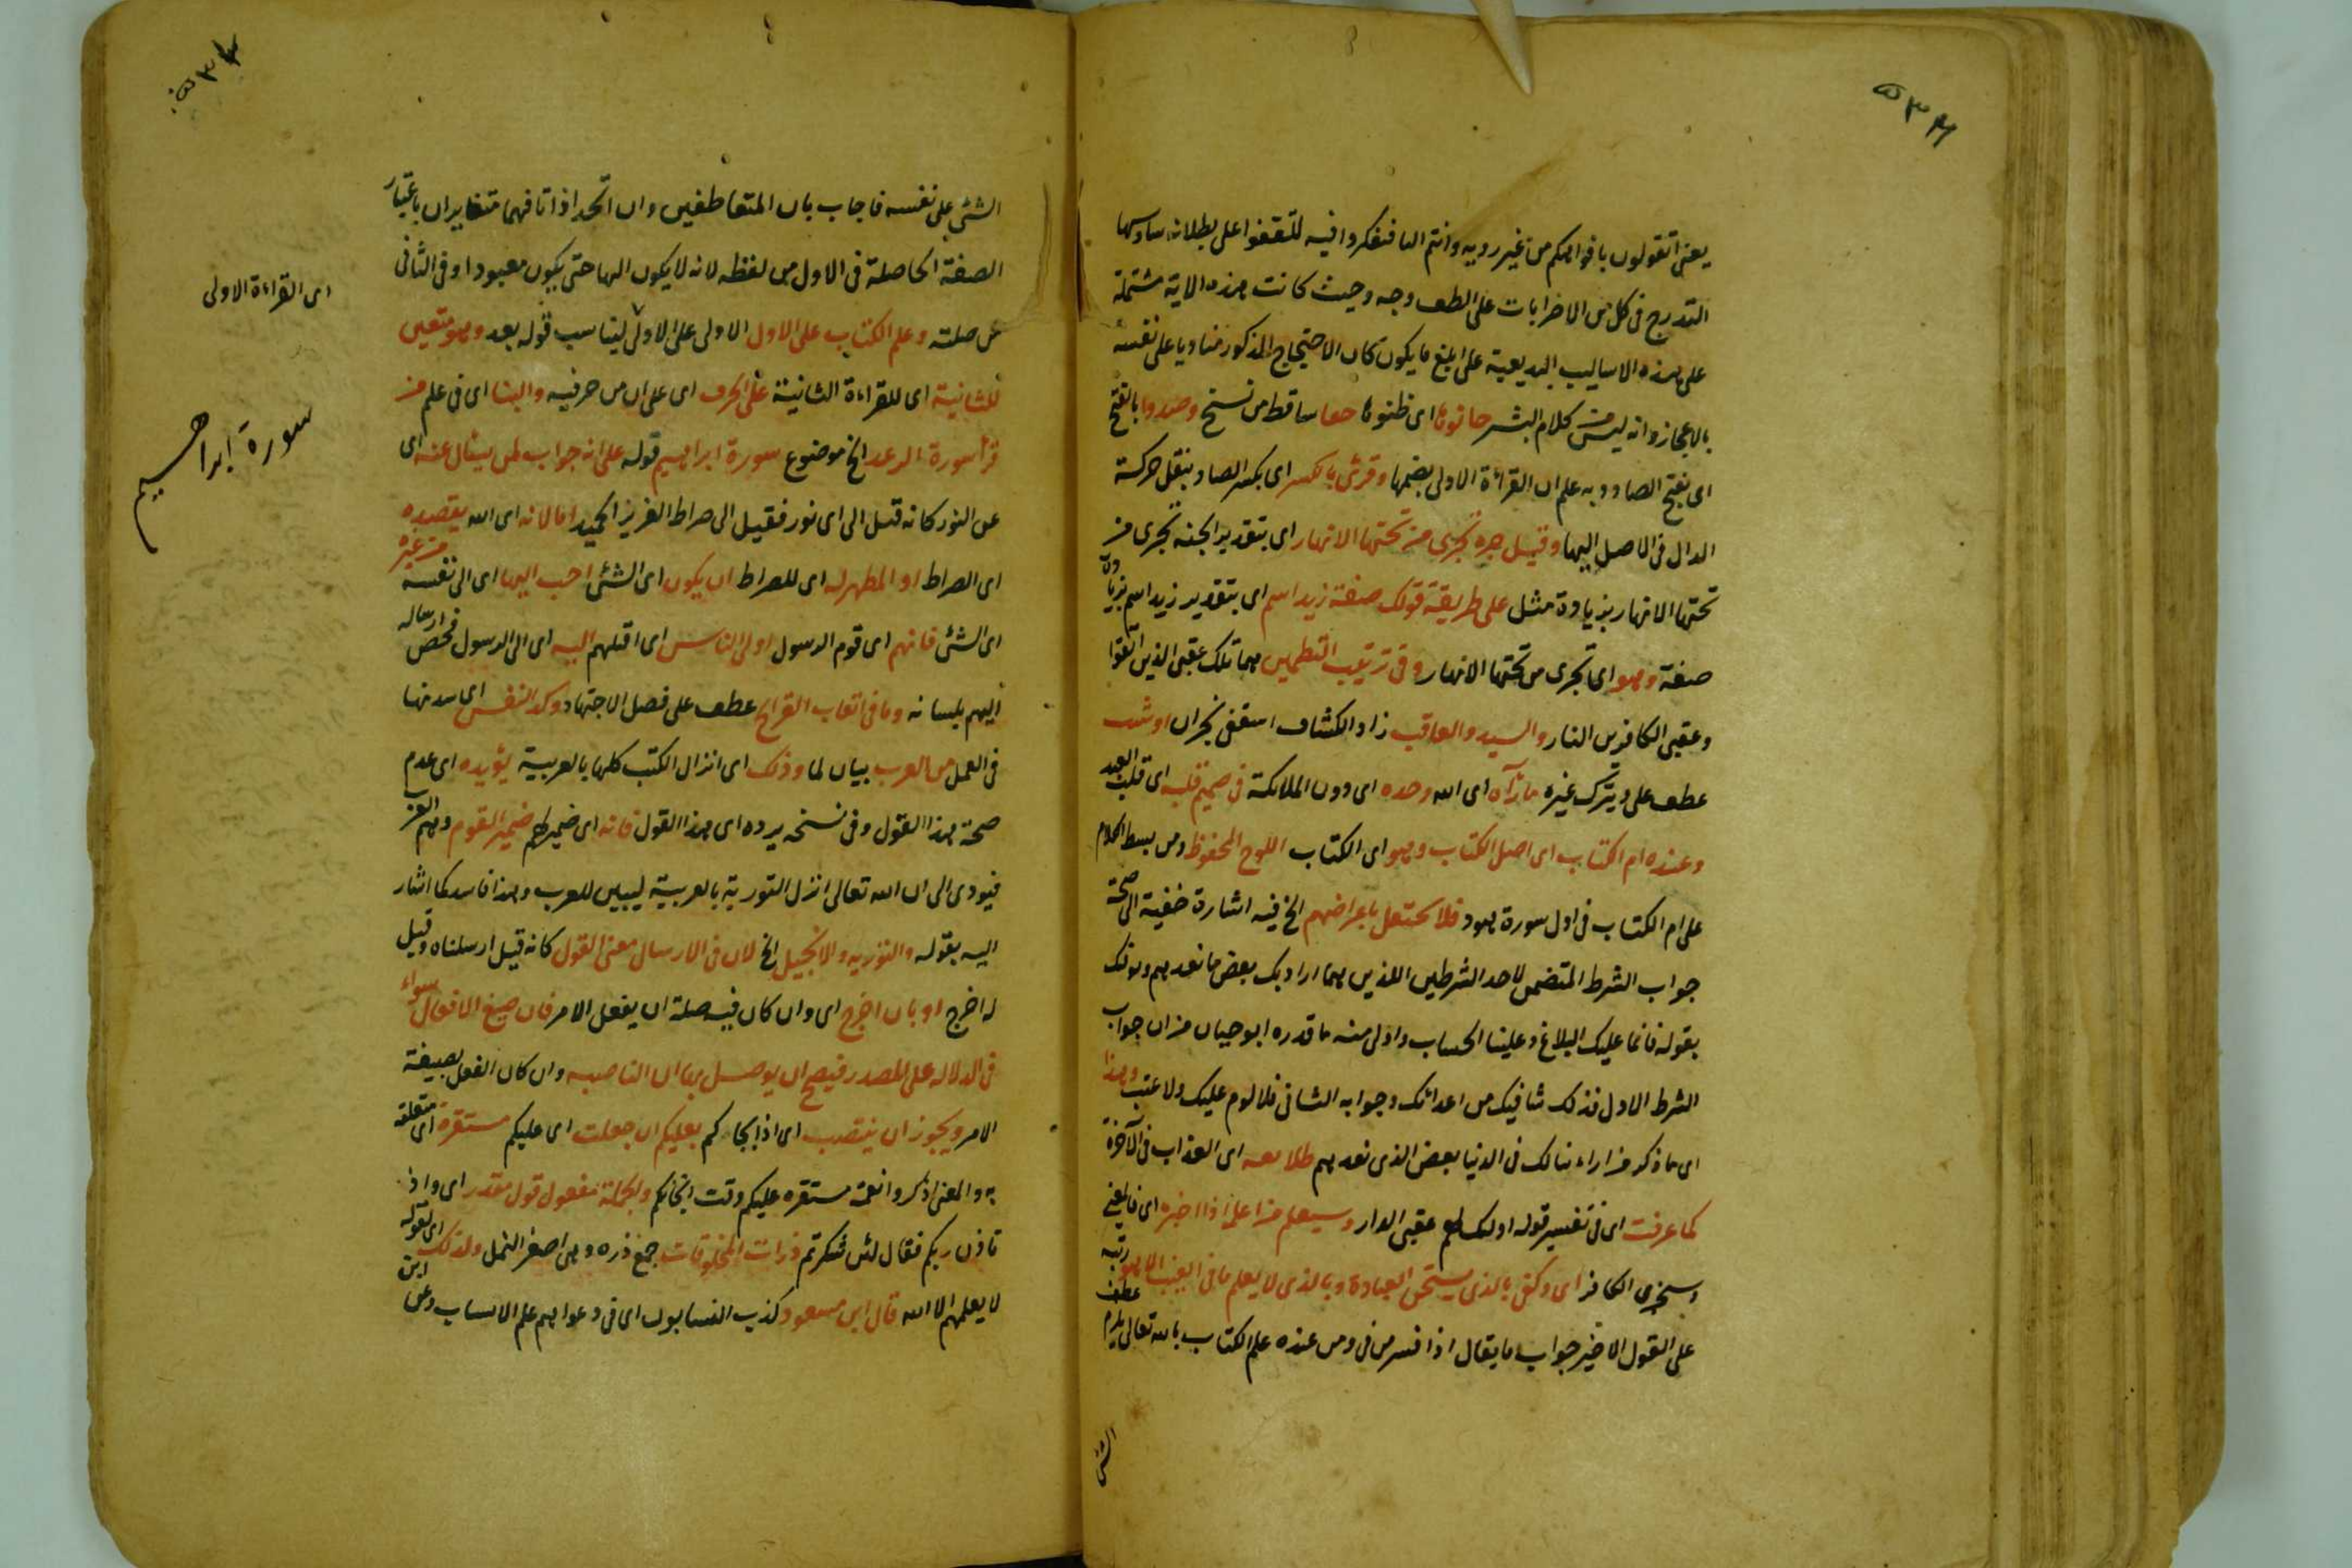 ٥٣٦
يعنى اتقولون بافواهكم من غير روية وانتم البا فتفكروا فيه لتقفوا على بطلانه ساوسها
التدرج فى كل من الاضرابات على الطف وجه وحيث كانت هذه الاية مشتملة
على هذه الاساليب البديعية على ابلغ ما يكون كان الاحتجاج المذكور مناديا على نفسه
بالاعجاز وانه ليس من كلام البشر اى ظنوا حقا ساقط من نسخ وصدوا بالفتح
اى بفتح الصاد وبه علم ان القراءة الاولى بضمها وقرئ بالكسر اى بكسر الصاد بنقل حركة
الدال فى الاصل اليها وقيل خبره تجرى من تحتها الانهار اى بتقدير الجنة تجرى من
تحتها الانهار بزيادة مثل على طريقة قولك صفة زيد اسمر اى بتقدير زيد اسمر بزيادة
صفة وهو اى تجرى من تحتها الانهار وفى ترتيب النظمين هما تلك عقبى الذين اتقوا
وعقبى الكافرين النار والسيد والعاقب زاد الكشاف اسقفى نجران اوشئ
عطف على ويترك غيره ما رآه اى الله وحده اى دون الملائكة فى صميم قلبه اى قلب العبد
وعنده ام الكتاب اى اصل الكتاب وهو اى الكتاب اللوح المحفوظ ومن بسط الكلام
على ام الكتاب فى اول سورة هود فلا تحتفل باعراضهم الخ فيه اشارة خفية الى صحة
جواب الشرط المتضمن لاحد الشرطين اللذين هما اراد بك بعض ما نعدهم ونوفك
بقوله فانما عليك البلاغ وعلينا الحساب واولى منه ما قدره ابو حيان من ان جواب
الشرط الاول فذلك شافيك من اعدائك وجوابه الثانى فلا لوم عليك ولا عتب وهذا
اى ما ذكر من اراءتنا لك فى الدنيا بعض الذى نعدهم طلايعه اى العذاب فى الآخرة
كما عرفت اى فى تفسير قوله اولئك لهم عقبى الدار وسيعلم من اعلمه اذا اخبره اى فالمعنى
وسيخبر الكافر اى وكفى بالذى يستحق العبادة وبالذى لا يعلم ما فى الغيب الا هو ربه عطف
على القول الاخير جواب ما يقال اذا فسر من فى ومن عنده علم الكتاب بالله تعالى يلزم
الشئ
٥٣٧
الشئ على نفسه فاجاب بان المتعاطفين وان اتحدا ذاتا فهما متغايران باعتبار
الصفة الحاصلة فى الاول من لفظه لانه لا يكون الها حتى يكون معبودا وفى الثانى
من صلته وعلم الكتاب على الاول الاولى على الاولى ليناسب قوله بعد وهو متعين
اى القراءة الاولى
للثانية اى للقراءة الثانية على الحرف اى على ان من حرفيه والبنا اى فى علم من
قرأ سورة الرعد الخ موضوع سورة ابراهيم قوله على انه جواب لمن يسأل عنه اى
سورة ابراهيم
عن النور كانه قيل الى اى نور فقيل الى صراط العزيز الحميد اما لانه اى الله يقصده
اى الصراط او المظهر له اى للصراط ان يكون اى الشئ احب اليها اى الى نفسه من غيره
اى الشئ فانهم اى قوم الرسول اولى الناس اى اقبلهم اليه اى الى الرسول فخص ارساله
اليهم بلسانه وما فى اتعاب القرائح عطف على فصل الاجتهاد وكد النفس اى سدتها
فى العمل من العرب بيان لما وذلك اى انزال الكتب كلها بالعربية يؤيده اى عدم
صحة هذا القول وفى نسخه يرده اى هذا القول فانه اى ضمير لهم ضمير القوم وهم العرب
فيؤدى الى ان الله تعالى انزل التورية بالعربية ليبين للعرب وهذا فاسد كما اشار
اليه بقوله والتورية والانجيل الخ لان فى الارسال معنى القول كانه قيل ارسلناه وقيل
له اخرج او بان اخرج اى وان كان فيه صلة ان يفعل الامر فان صيغ الافعال سواء
فى الدلالة على المصدر فيصح ان يوصل بها ان الناصبه وان كان الفعل بصيغة
الامر ويجوز ان ينتصب اى اذ انجاكم بعليكم ان جعلت اى عليكم مستقرة اى متعلقة
به والمعنى اذكروا نعمة مستقره عليكم وقت انجائكم والجملة مفعول قول مقدر اى واذ
تاذن ربكم فقال لئن شكرتم ذرات المخلوقات جمع ذره وهى اصغر النمل ولذلك اى لقوله
لا يعلمهم الا الله قال ابن مسعود كذب النسابون اى فى دعواهم علم الانساب وعن ابن